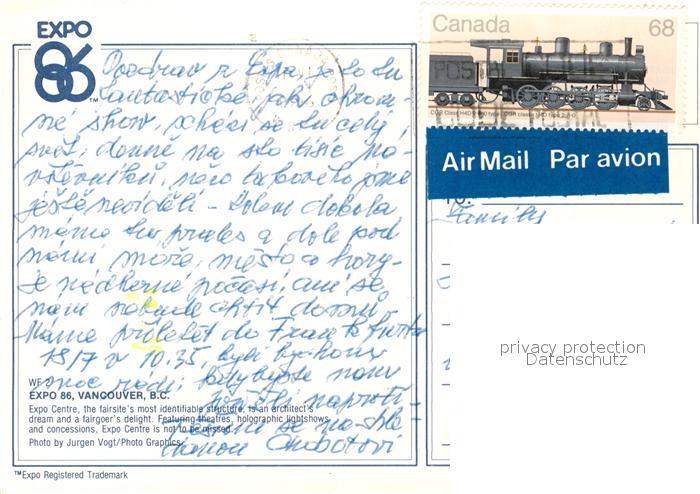 EXPO
86™
Pozdrav z Expa, je to tu
fantastické, jak ohrom-
né show, schází se tu celý
svět, denně na sto tisíc ná-
vštěvníků, něco takového jsme
ještě neviděli - kolem dokola
máme les a dole pod
námi moře, město a hory -
je nádherné počasí, ani se
nám nebude chtít domů.
Máme přiletět do Frankfurtu
18/7 v 10.35, byli bychom
moc rádi, kdybyste nám
přijeli naproti -
Těšíme se na shle-
danou
WF
EXPO 86, VANCOUVER, B.C.
Expo Centre, the fairsite's most identifiable structure, is an architect's
dream and a fairgoer's delight. Featuring theatres, holographic lightshows
and concessions, Expo Centre is not to be missed.
Photo by Jurgen Vogt/Photo Graphics
™Expo Registered Trademark
Canada 68
CGR Class H4D 2-8-0 type
Air Mail Par avion
TO:
Family
privacy protection
Datenschutz